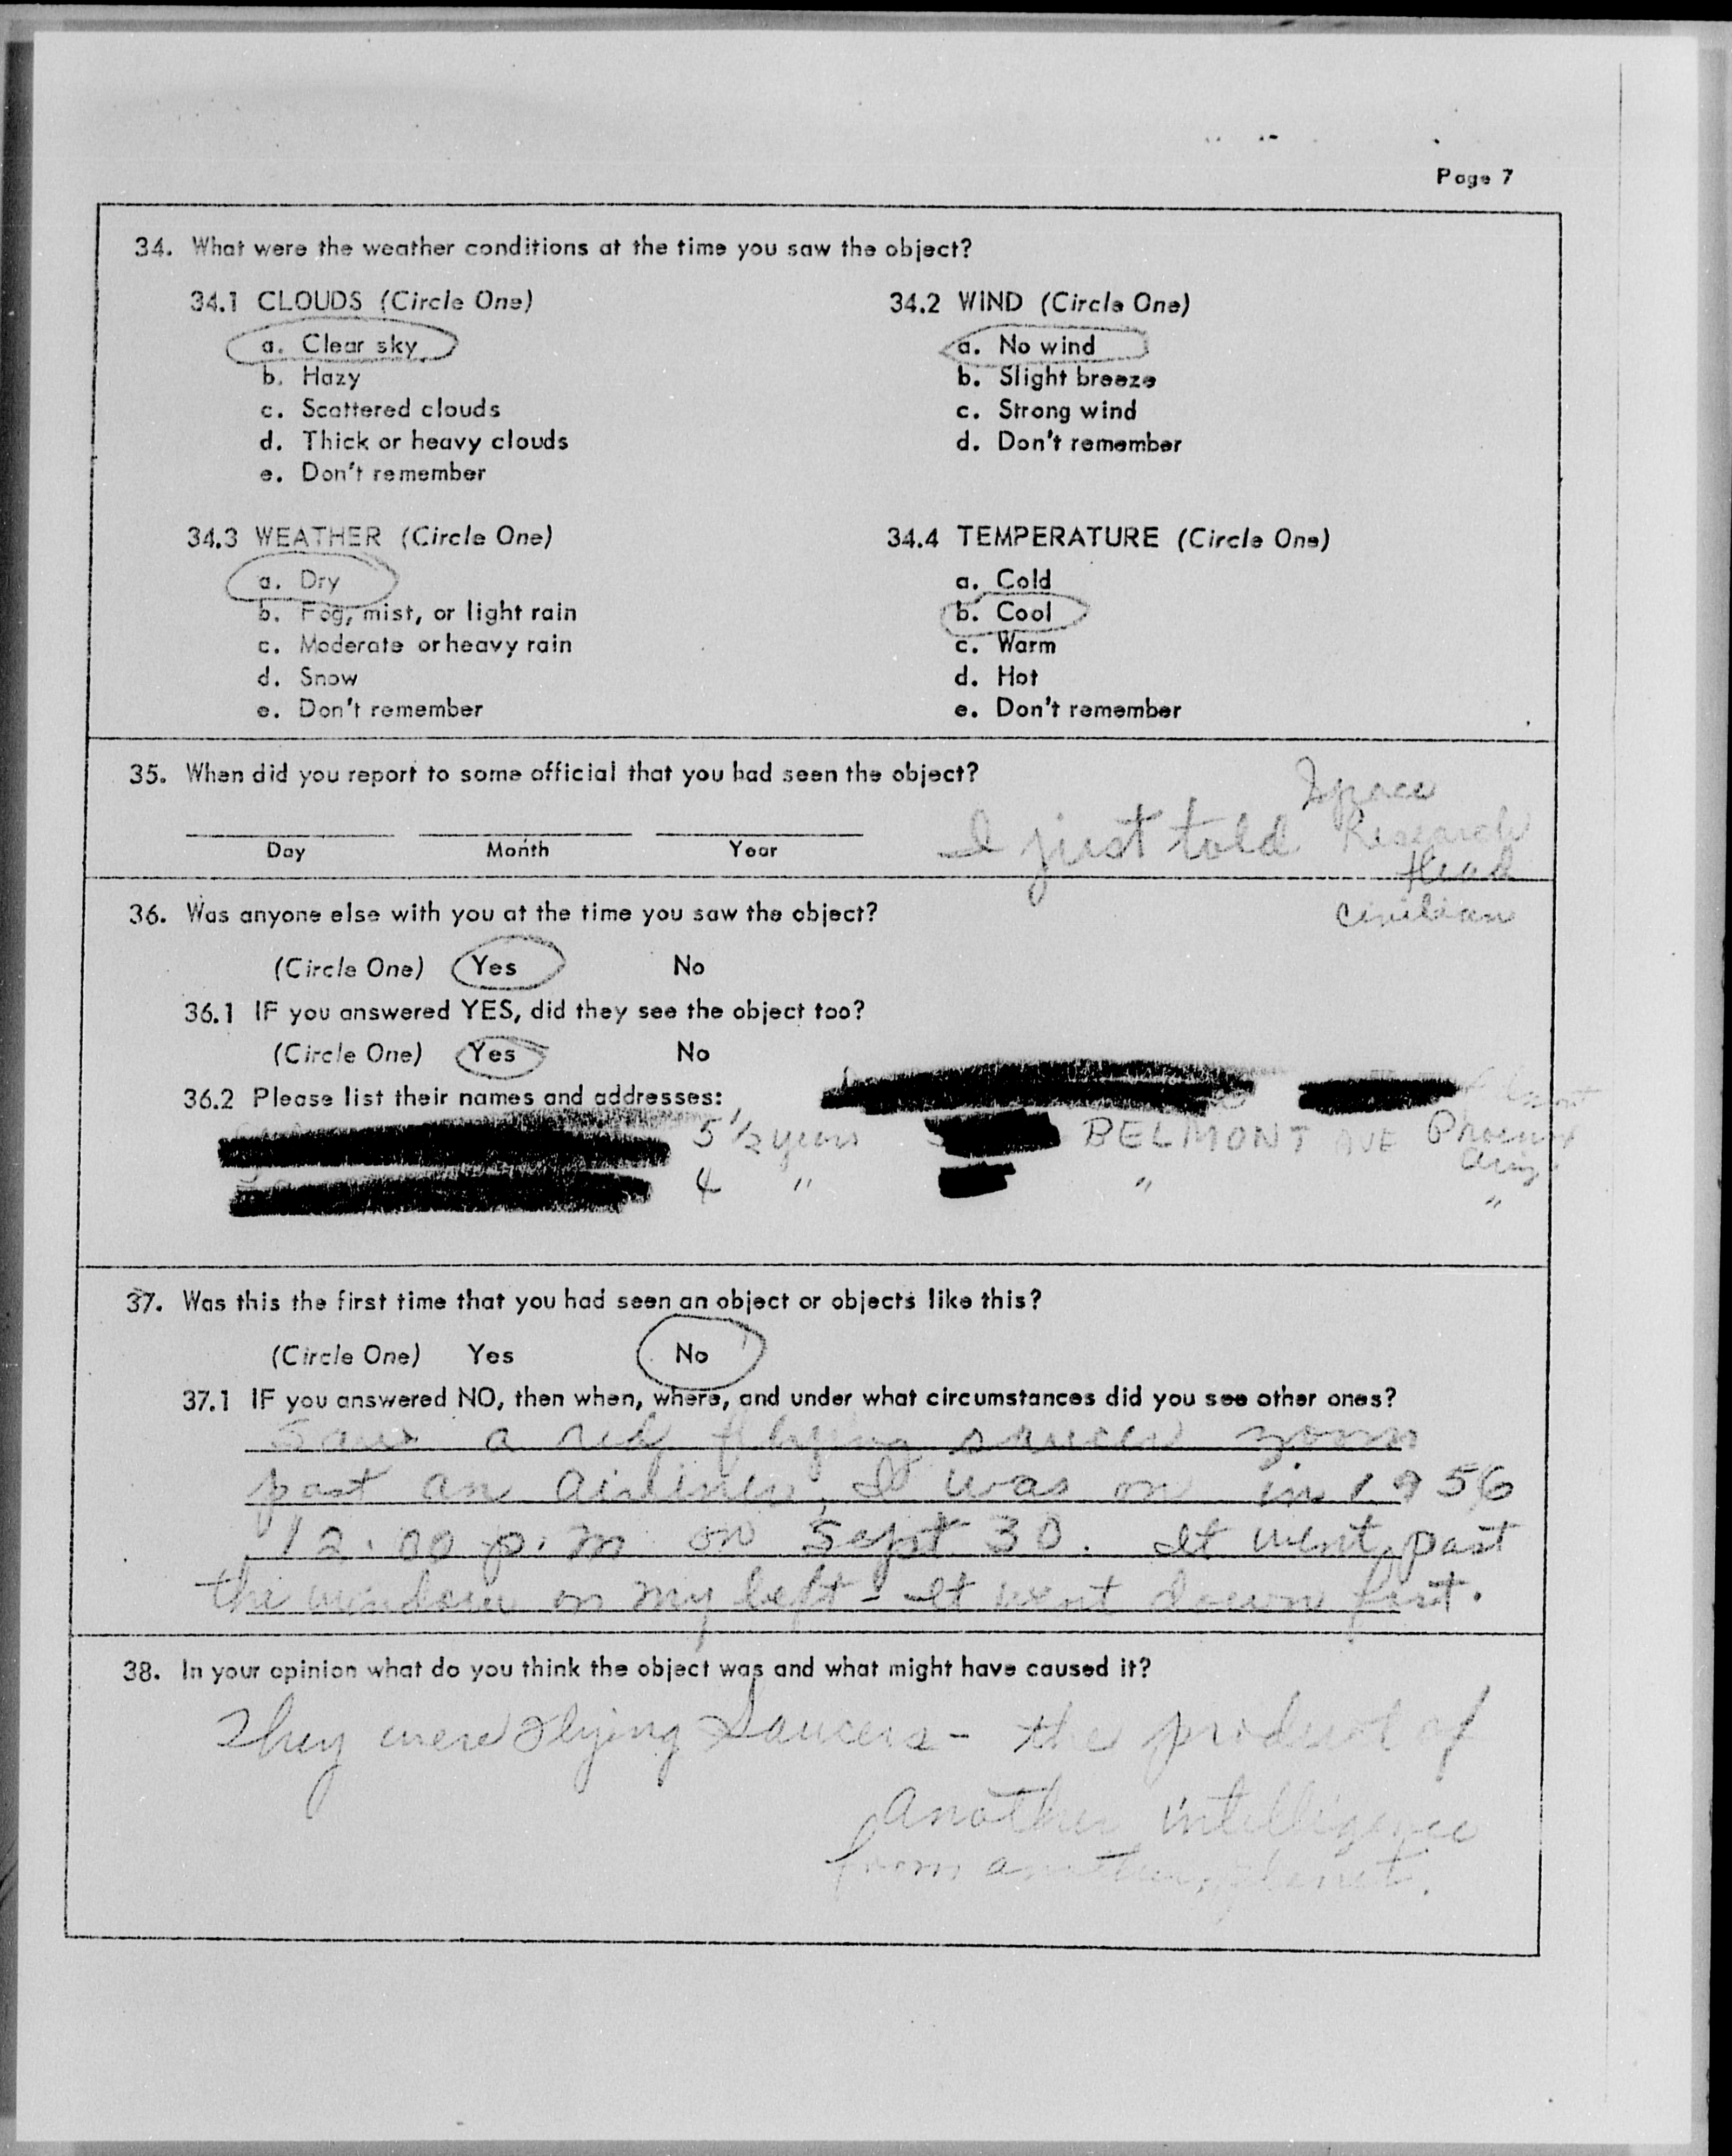 Page 7
34. What were the weather conditions at the time you saw the object?
34.1 CLOUDS (Circle One)
a. Clear sky
b. Hazy
c. Scattered clouds
d. Thick or heavy clouds
e. Don't remember
34.2 WIND (Circle One)
a. No wind
b. Slight breeze
c. Strong wind
d. Don't remember
34.3 WEATHER (Circle One)
a. Dry
b. Fog, mist, or light rain
c. Moderate or heavy rain
d. Snow
e. Don't remember
34.4 TEMPERATURE (Circle One)
a. Cold
b. Cool
c. Warm
d. Hot
e. Don't remember
35. When did you report to some official that you had seen the object?
Day Month Year
I just told Space
Research
Head
civilian
36. Was anyone else with you at the time you saw the object?
(Circle One) Yes No
36.1 IF you answered YES, did they see the object too?
(Circle One) Yes No
36.2 Please list their names and addresses:
5 1/2 years BELMONT AVE Phoenix
Ariz.
4 " " "
37. Was this the first time that you had seen an object or objects like this?
(Circle One) Yes No
37.1 IF you answered NO, then when, where, and under what circumstances did you see other ones?
Saw a red flying saucer zoom
past an airliner. It was on in 1956
12:00 p.m on Sept 30. It went past
the window on my left - It went down fast.
38. In your opinion what do you think the object was and what might have caused it?
They were Flying Saucers - the product of
another intelligence
from another planet.